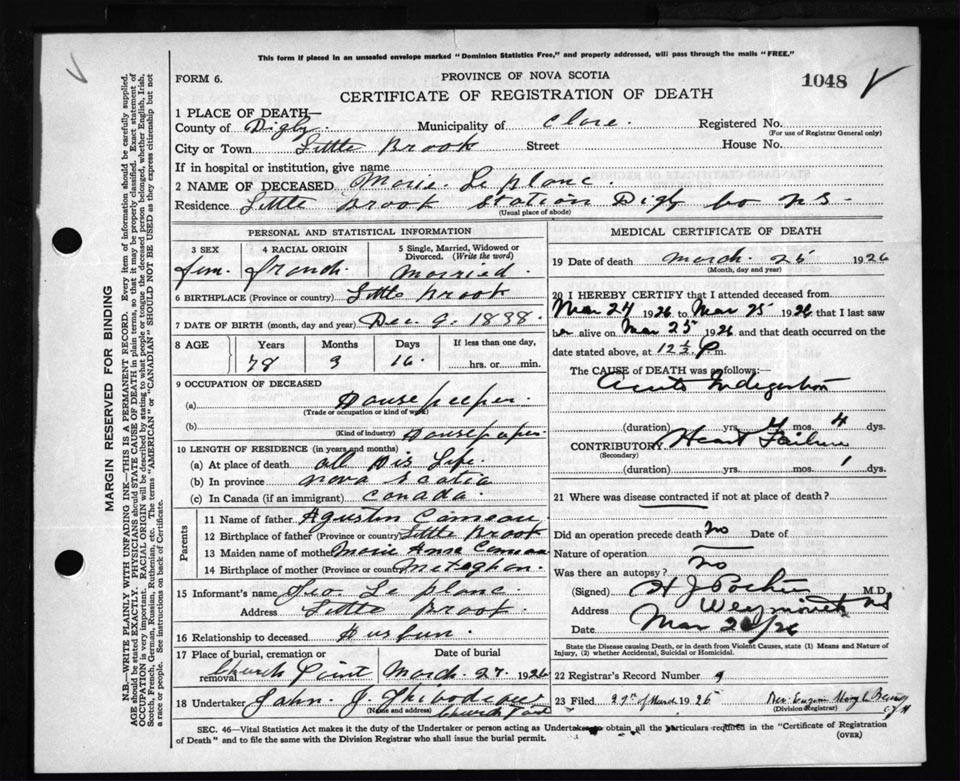 This form if placed in an unsealed envelope marked "Dominion Statistics Free," and properly addressed, will pass through the mails "FREE."
FORM 6.
PROVINCE OF NOVA SCOTIA
1048
CERTIFICATE OF REGISTRATION OF DEATH
1 PLACE OF DEATH—
County of Digby. Municipality of Clare. Registered No.
(For use of Registrar General only)
City or Town Little Brook Street House No.
If in hospital or institution, give name
2 NAME OF DECEASED Marie. Le Blanc.
Residence Little Brook Station Digby Co N.S-
(Usual place of abode)
PERSONAL AND STATISTICAL INFORMATION
3 SEX 4 RACIAL ORIGIN 5 Single, Married, Widowed or Divorced. (Write the word)
fem. french. Married.
6 BIRTHPLACE (Province or country) Little Brook
7 DATE OF BIRTH (month, day and year) Dec 9. 1838.
8 AGE Years Months Days If less than one day,
78 3 16. hrs. or min.
9 OCCUPATION OF DECEASED
(a) House keeper.
(Trade or occupation or kind of work)
(b)
(Kind of industry)
10 LENGTH OF RESIDENCE (in years and months)
(a) At place of death all His Life.
(b) In province Nova Scotia
(c) In Canada (if an immigrant) Canada.
Parents
11 Name of father Agustin Comeau
12 Birthplace of father (Province or country) Little Brook
13 Maiden name of mother Marie Anne Comeau
14 Birthplace of mother (Province or country) Meteghan.
15 Informant's name Geo. Le Blanc.
Address Little Brook.
16 Relationship to deceased Husbun.
17 Place of burial, cremation or removal Church Point Date of burial March. 27. 1926
18 Undertaker John J. Thibodeau
(Name and address) Church Point
MEDICAL CERTIFICATE OF DEATH
19 Date of death March. 25 1926
(Month, day and year)
20 I HEREBY CERTIFY that I attended deceased from
Mar 24 1926 to Mar 25 1926 that I last saw
her alive on Mar 25 1926 and that death occurred on
date stated above, at P.m.
The CAUSE of DEATH was as follows:—
Acute Indigestion
(duration) yrs. mos. 4 dys.
CONTRIBUTORY Heart Failure
(Secondary)
(duration) yrs. mos. 1 dys.
21 Where was disease contracted if not at place of death?
Did an operation precede death? No Date of
Nature of operation
Was there an autopsy? No
(Signed) M.D.
Address Weymouth NS
Date Mar 26/26
State the Disease causing Death, or in death from Violent Causes, state (1) Means and Nature of Injury, (2) whether Accidental, Suicidal or Homicidal.
22 Registrar's Record Number 9
23 Filed 27th of March 1926
(Division Registrar)
SEC. 46—Vital Statistics Act makes it the duty of the Undertaker or person acting as Undertaker to obtain all the particulars required in the "Certificate of Registration
of Death" and to file the same with the Division Registrar who shall issue the burial permit.
(OVER)
MARGIN RESERVED FOR BINDING
N.B.—WRITE PLAINLY WITH UNFADING INK—THIS IS A PERMANENT RECORD. Every item of information should be carefully supplied.
AGE should be stated EXACTLY. PHYSICIANS should STATE CAUSE OF DEATH in plain terms, so that it may be properly classified. Exact statement of
OCCUPATION is very important. RACIAL ORIGIN will be described by stating to what people or tongue the deceased person belonged, whether English, Irish,
Scotch, French, German, Russian, Ruthenian, etc. The terms "AMERICAN" or "CANADIAN" SHOULD NOT BE USED as they express citizenship but not
a race or people. See instructions on back of Certificate.